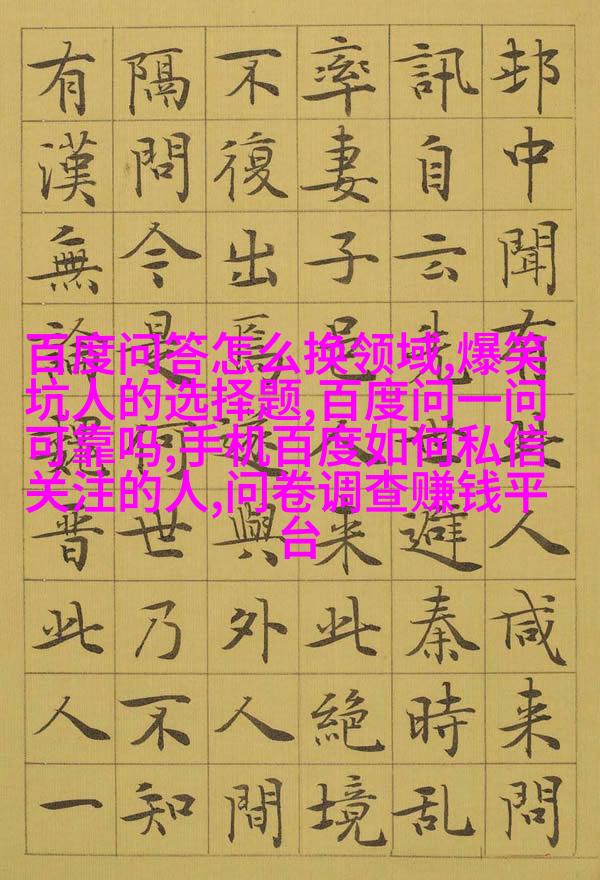 邨中聞有人咸来問
訊自云先世避秦時乱
率妻子邑人来此絶境
不復出焉遂與外人間
隔問今是何世乃不知
有漢無論魏晋此人一
百度问答怎么换领域,爆笑
坑人的选择题,百度问一问
可靠吗,手机百度如何私信
关注的人,问卷调查赚钱平
台